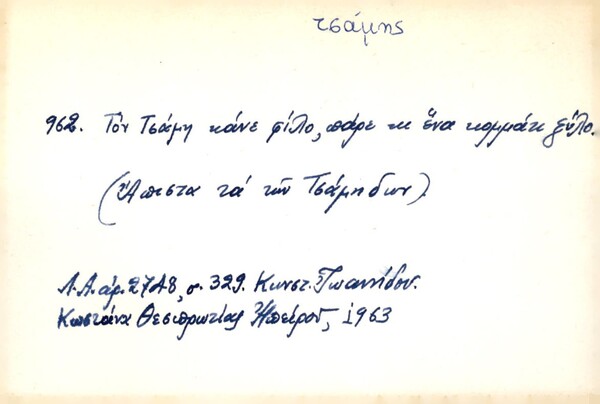 τσάμης
962. Τόν Τσάμη κάνε φίλο, πάρε κι ἕνα κομμάτι ξύλο.
(Ἄπιστα τά τῶν Τσάμηδων).
Λ.Α. ἀρ. 2748, σ. 329. Κωνστ. Ἰωαννίδου.
Κωστάνα Θεσπρωτίας Ἠπείρου, 1963